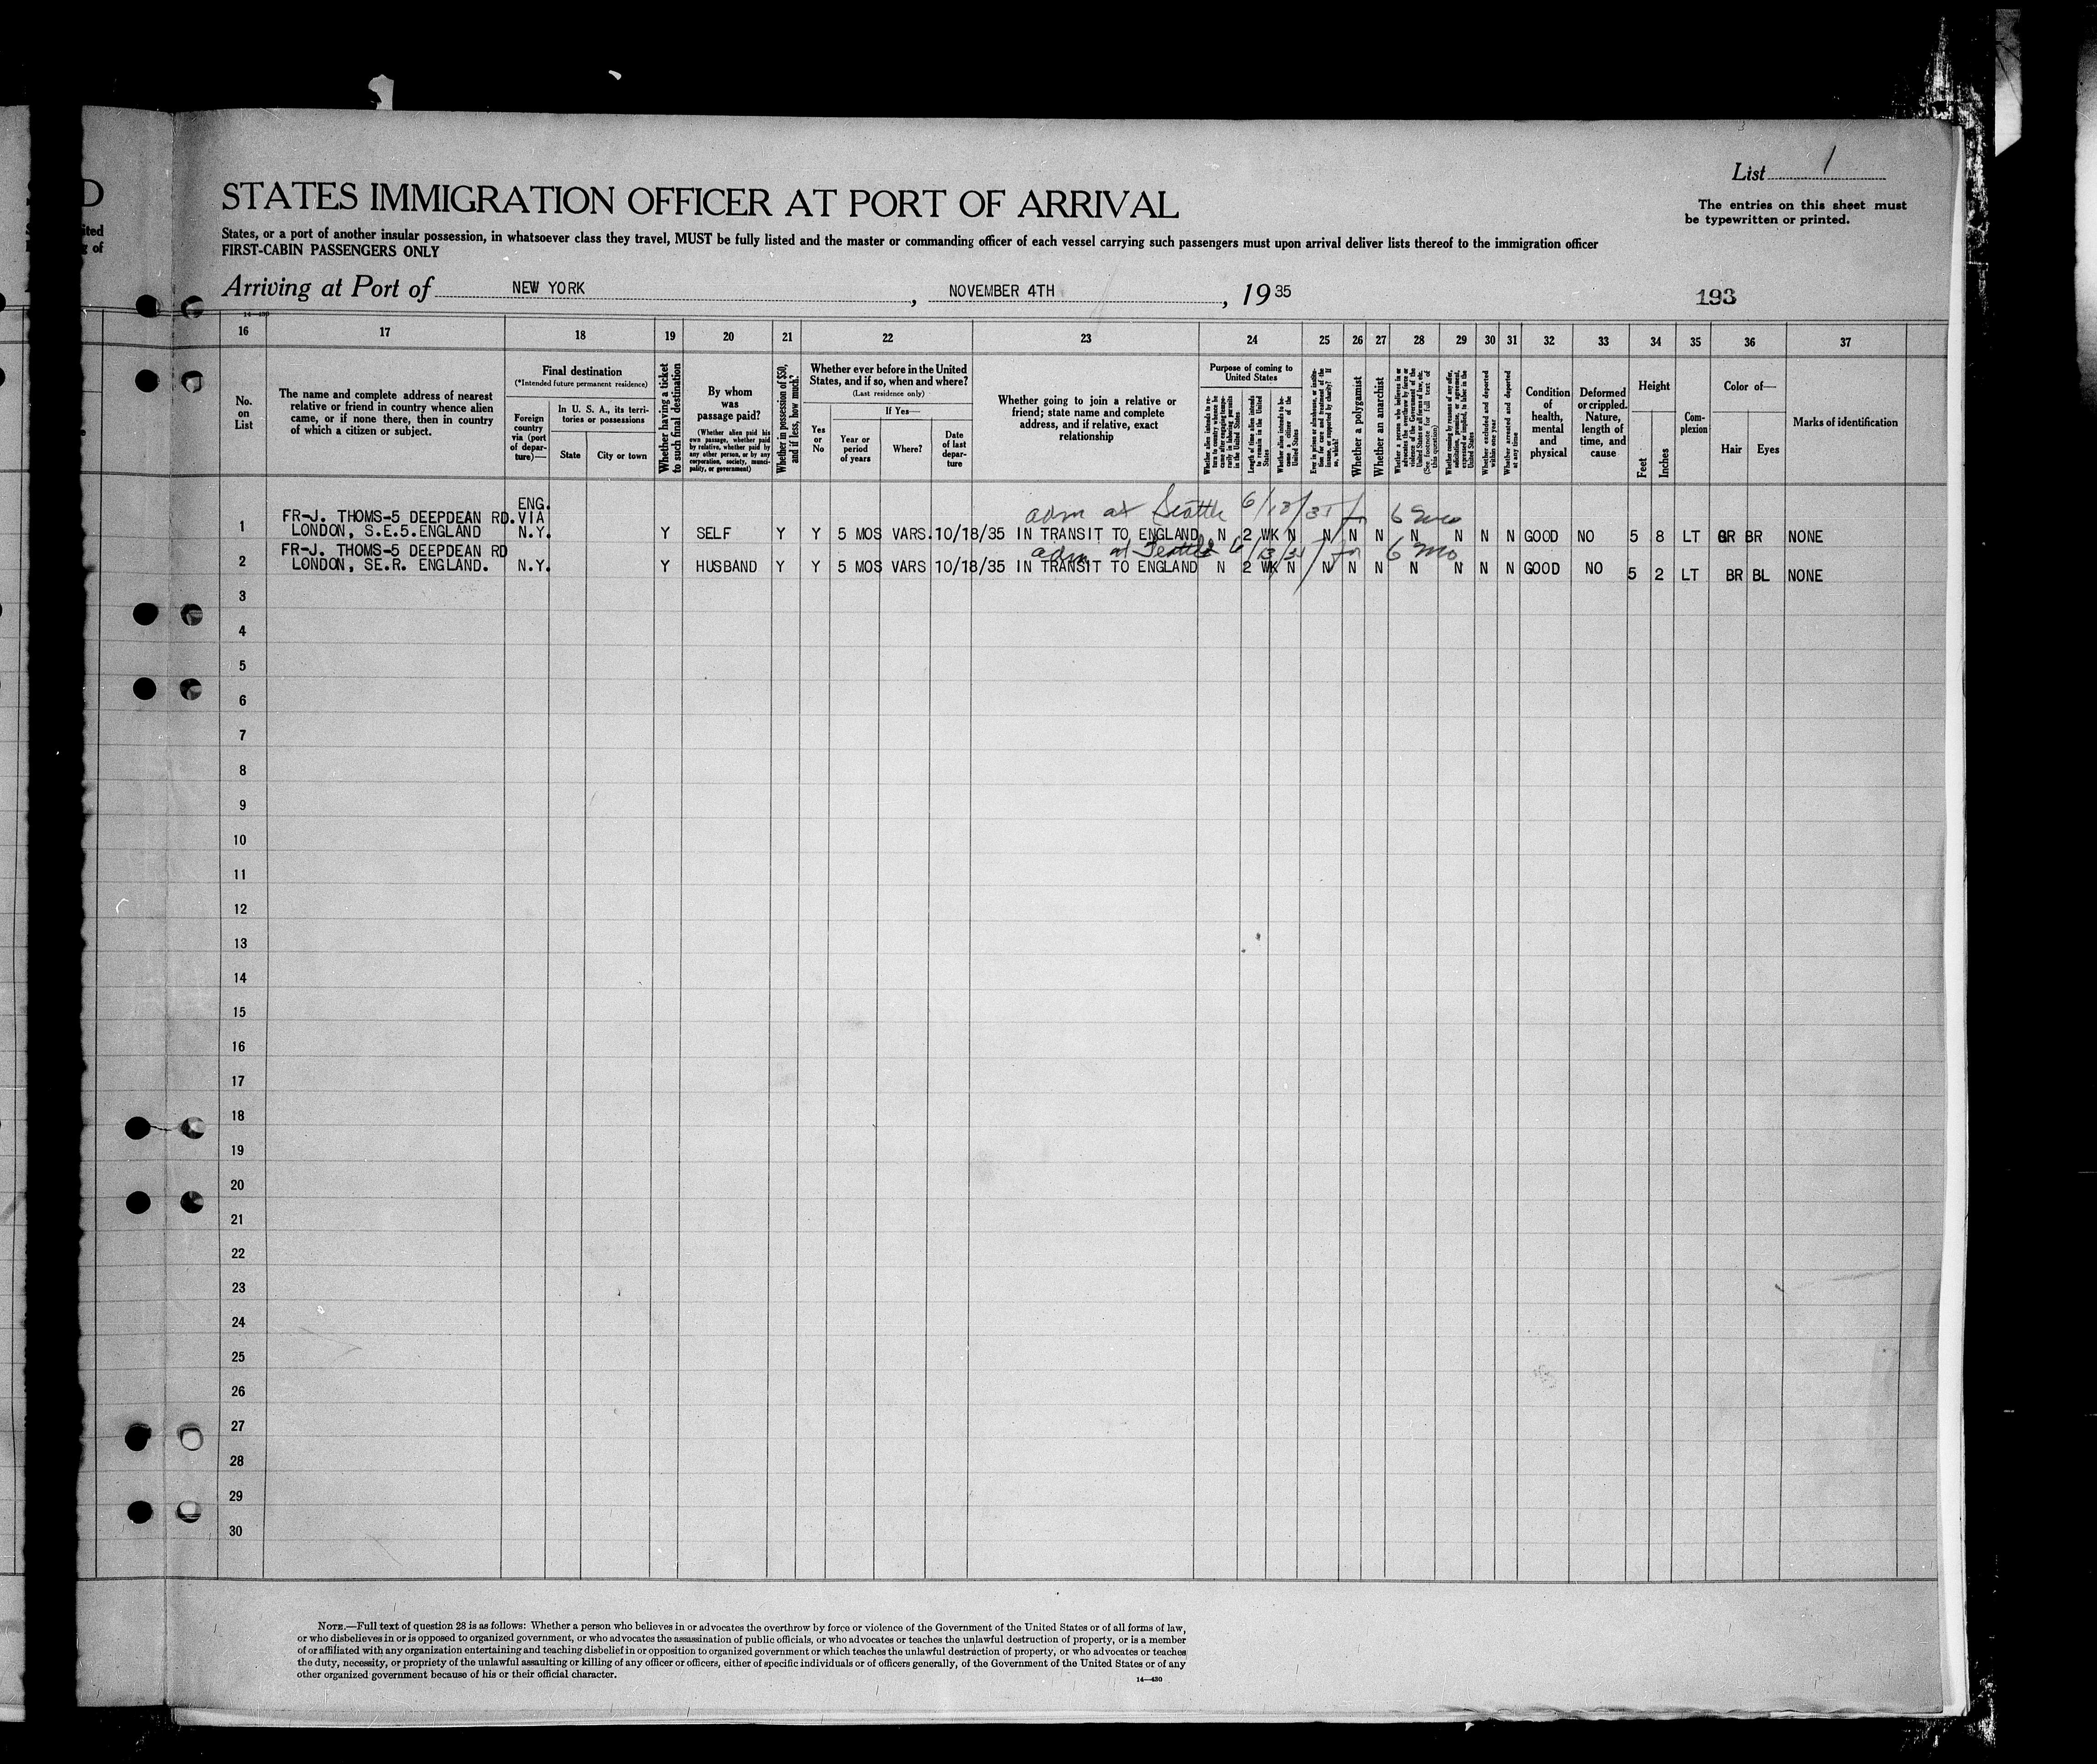 D
ited
g of
List 1
The entries on this sheet must
be typewritten or printed.
STATES IMMIGRATION OFFICER AT PORT OF ARRIVAL
States, or a port of another insular possession, in whatsoever class they travel, MUST be fully listed and the master or commanding officer of each vessel carrying such passengers must upon arrival deliver lists thereof to the immigration officer
FIRST-CABIN PASSENGERS ONLY
Arriving at Port of NEW YORK, NOVEMBER 4TH, 1935
193
14—430
16 17 18 19 20 21 22 23 24 25 26 27 28 29 30 31 32 33 34 35 36 37
No.
on
List
The name and complete address of nearest
relative or friend in country whence alien
came, or if none there, then in country
of which a citizen or subject.
Final destination
(*Intended future permanent residence)
Foreign
country
via (port
of depar-
ture)—
In U. S. A., its terri-
tories or possessions
State
City or town
Whether having a ticket
to such final destination
By whom
was
passage paid?
(Whether alien paid his
own passage, whether paid
by relative, whether paid by
any other person, or by any
corporation, society, munici-
pality, or government)
Whether in possession of $50,
and if less, how much?
Whether ever before in the United
States, and if so, when and where?
(Last residence only)
Yes
or
No
If Yes—
Year or
period
of years
Where?
Date
of last
depar-
ture
Whether going to join a relative or
friend; state name and complete
address, and if relative, exact
relationship
Purpose of coming to
United States
Whether alien intends to re-
turn to country whence he
came after engaging tempo-
rarily in laboring pursuits
in the United States
Length of time alien intends
to remain in the United
States
Whether alien intends to be-
come a citizen of the
United States
Ever in prison or almshouse, or institu-
tion for care and treatment of the
insane, or supported by charity? If
so, which?
Whether a polygamist
Whether an anarchist
Whether a person who believes in or
advocates the overthrow by force or
violence of the Government of the
United States or all forms of law, etc.
(See footnote for full text of
this question)
Whether coming by reasons of any offer,
solicitation, promise, or agreement,
expressed or implied, to labor in the
United States
Whether excluded and deported
within one year
Whether arrested and deported
at any time
Condition
of
health,
mental
and
physical
Deformed
or crippled.
Nature,
length of
time, and
cause
Height
Feet
Inches
Com-
plexion
Color of—
Hair
Eyes
Marks of identification
adm at Seattle 6/13/35 for 6 mos
ENG.
FR-J. THOMS-5 DEEPDEAN RD. VIA
1 LONDON, S.E.5.ENGLAND N.Y. Y SELF Y Y 5 MOS VARS. 10/18/35 IN TRANSIT TO ENGLAND N 2 WK N N N N N N N N GOOD NO 5 8 LT BR BR NONE
adm at Seattle 6/13/35 for 6 mo
FR-J. THOMS-5 DEEPDEAN RD
2 LONDON, SE.R. ENGLAND. N.Y. Y HUSBAND Y Y 5 MOS VARS 10/18/35 IN TRANSIT TO ENGLAND N 2 WK N N N N N N N N GOOD NO 5 2 LT BR BL NONE
3
4
5
6
7
8
9
10
11
12
13
14
15
16
17
18
19
20
21
22
23
24
25
26
27
28
29
30
NOTE.—Full text of question 28 is as follows: Whether a person who believes in or advocates the overthrow by force or violence of the Government of the United States or of all forms of law,
or who disbelieves in or is opposed to organized government, or who advocates the assassination of public officials, or who advocates or teaches the unlawful destruction of property, or is a member
of or affiliated with any organization entertaining and teaching disbelief in or opposition to organized government or which teaches the unlawful destruction of property, or who advocates or teaches
the duty, necessity, or propriety of the unlawful assaulting or killing of any officer or officers, either of specific individuals or of officers generally, of the Government of the United States or of any
other organized government because of his or their official character.
14—430